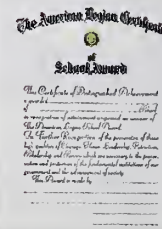 The American Legion Certificate
of
School Award
This Certificate of Distinguished Achievement
awarded
of
in recognition of achievement as winner of
The American Legion School Award.
In Further Recognition of the possession of those
high qualities of Courage, Honor, Leadership, Patriotism,
Scholarship and Service which are necessary to the preser-
vation and protection of the fundamental institutions of our
government and the advancement of society.
This Award is made by